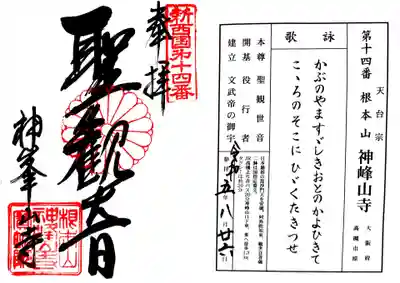 天台宗
第十四番 根本山 神峰山寺
大阪府
高槻市原
詠歌
かぶのやますゞしきおとのかよひきて
こゝろのそこにひゞくたきつせ
本尊 聖観世音
開基 役行者
建立 文武帝の御宇
令和五 八 廿六
奉拝
新西国第十四番
聖観世音
神峯山寺